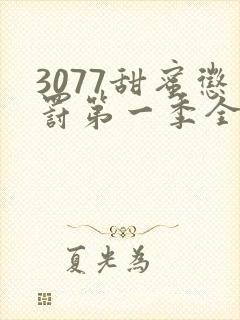 3077甜蜜惩
罚第一季全
夏光為